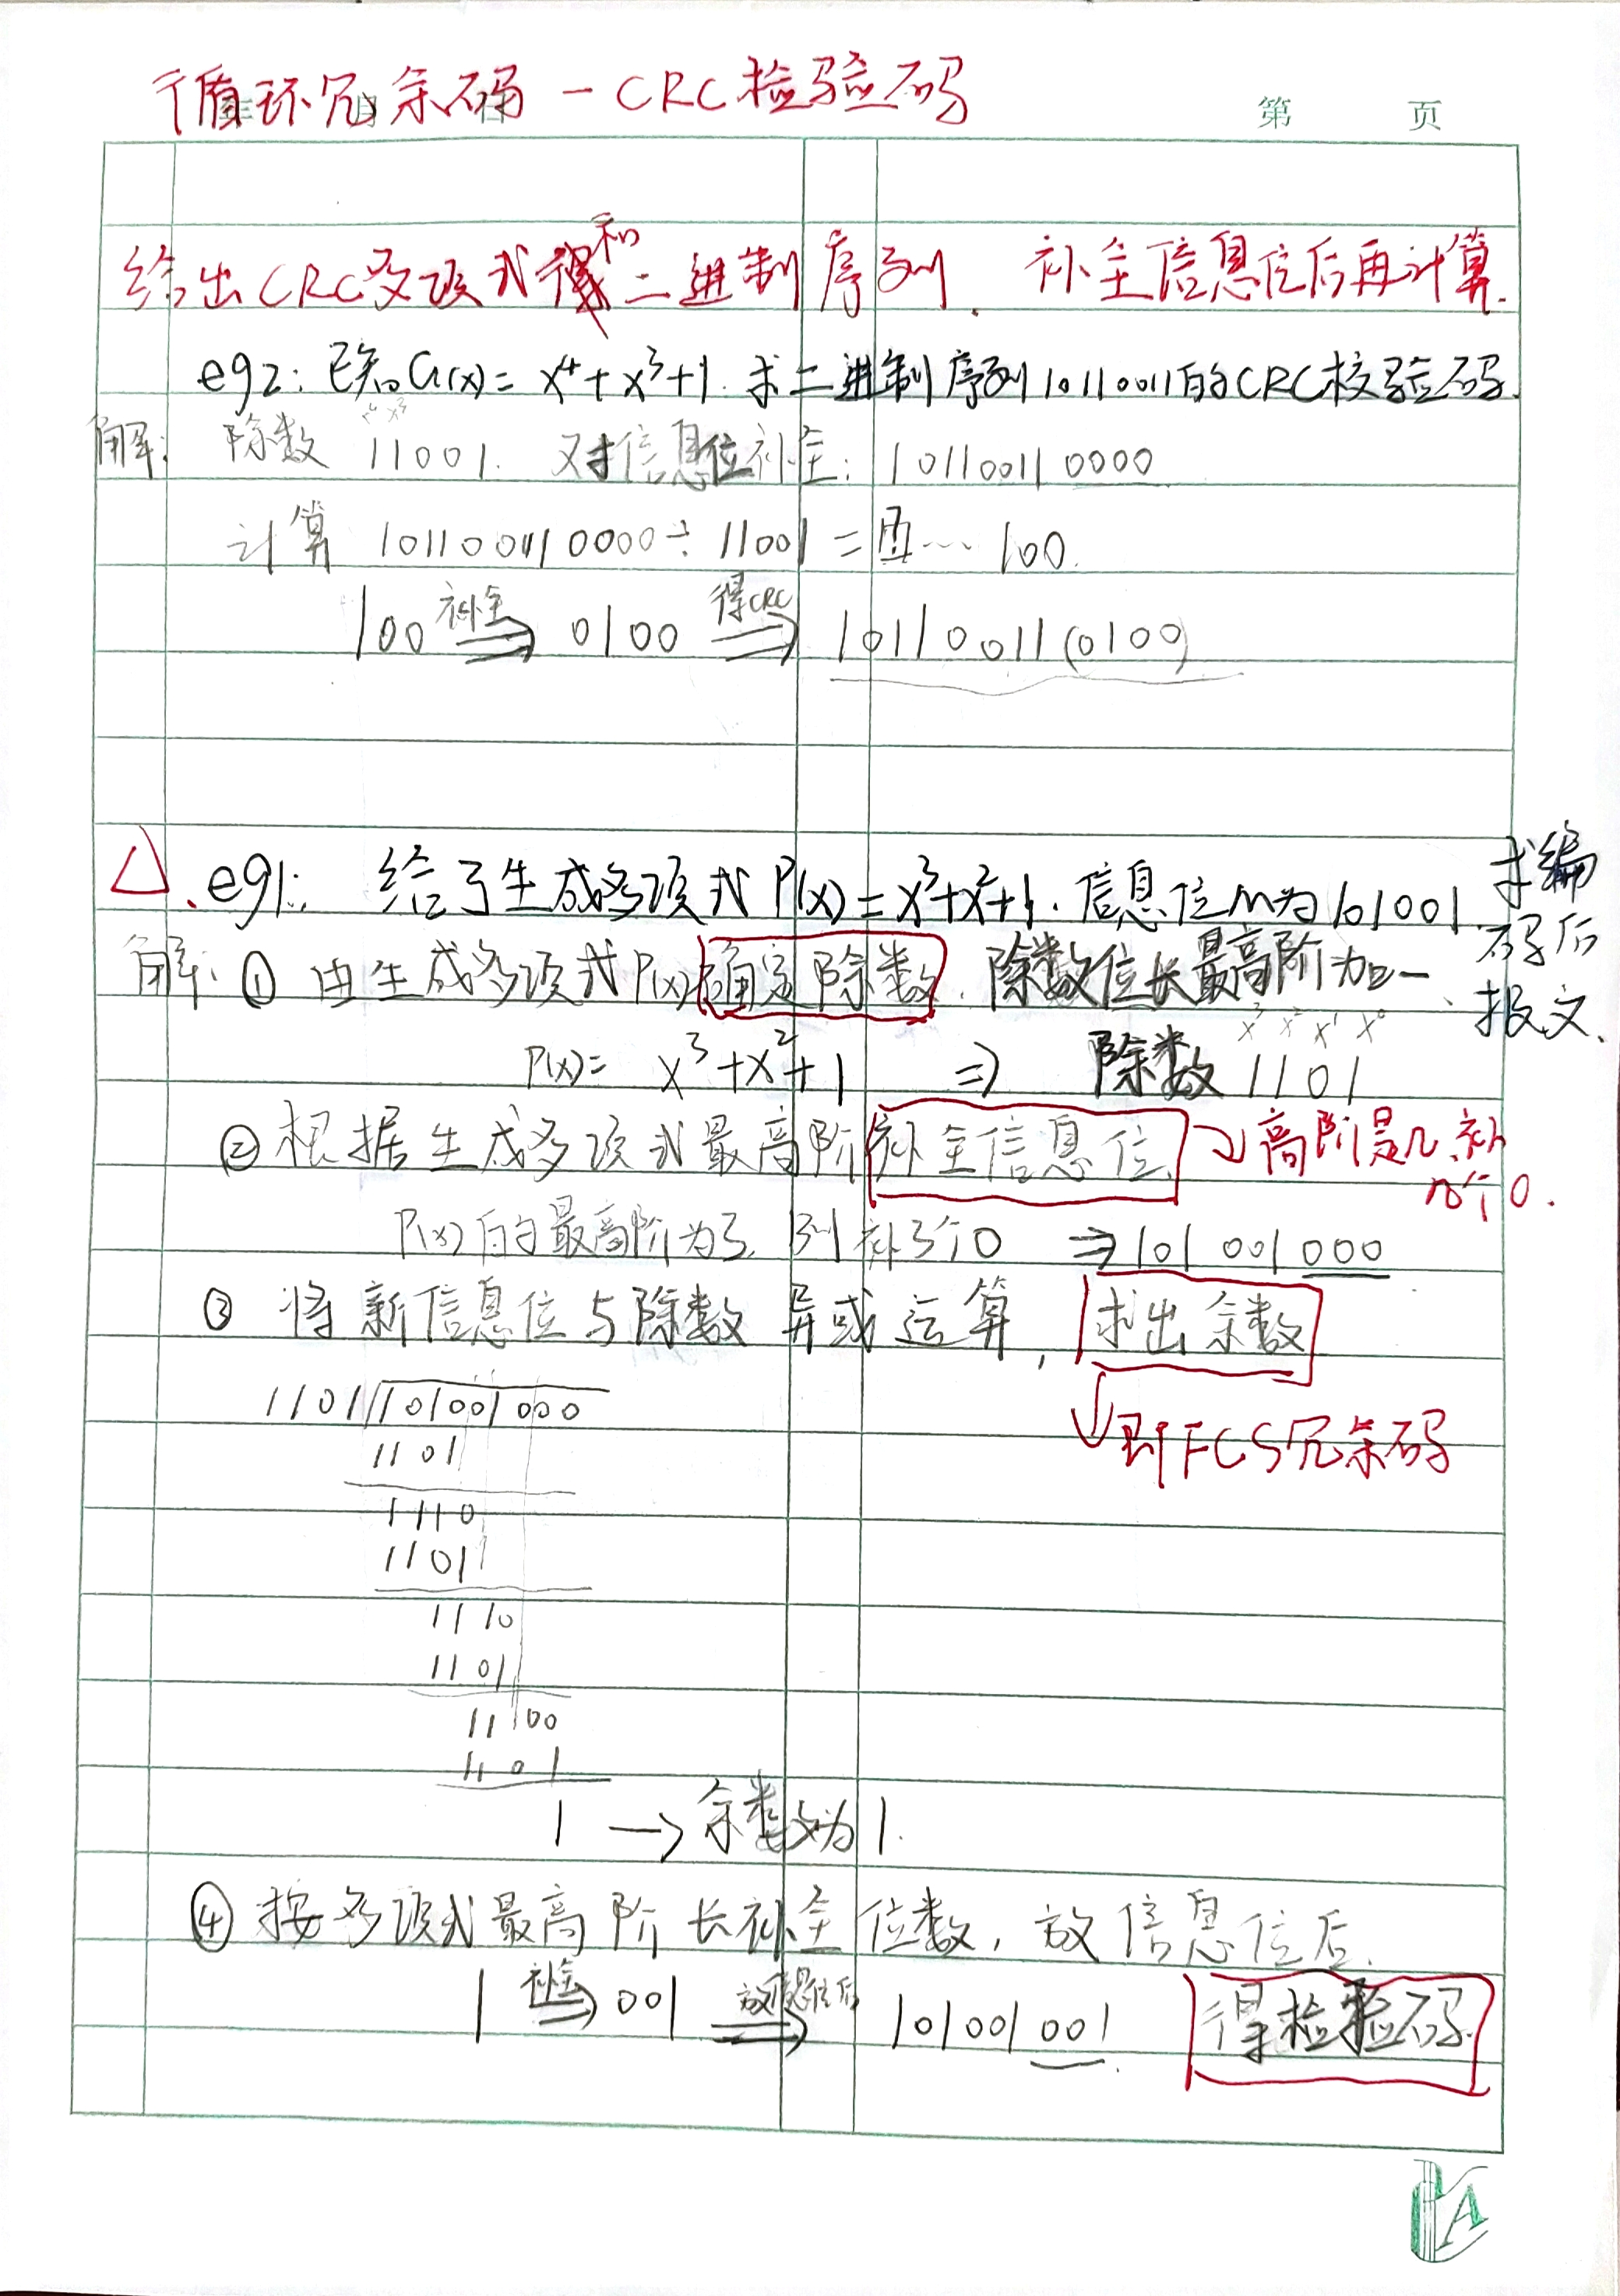 循环冗余码-CRC检验码
第 页
给出CRC多项式和二进制序列. 补全信息位后再计算.
eg2: 已知G(x)= x⁴+x³+1. 求二进制序列10110011的CRC校验码.
解: 除数 11001. 对信息位补全: 10110011 0000
计算 10110011 0000 ÷ 11001 = … 100.
100 补全⇒ 0100 得CRC⇒ 10110011(0100)
△. eg1: 给了生成多项式 P(x)=x³+x²+1. 信息位M为101001. 求编码后报文.
解: ① 由生成多项式P(x)确定除数. 除数位长最高阶加一.
x³ x² x¹ x⁰
P(x)= x³+x²+1 ⇒ 除数 1101
② 根据生成多项式最高阶补全信息位. → 高阶是几补几个0.
P(x)的最高阶为3. 则补3个0 ⇒ 101001000
③ 将新信息位与除数异或运算, 求出余数
↓即FCS冗余码
1101/101001000
1101
1110
1101
1110
1101
1100
1101
1 → 余数为1.
④ 按多项式最高阶长补全位数, 放信息位后.
1 补全⇒ 001 放信息位后⇒ 101001001 得检验码.
A